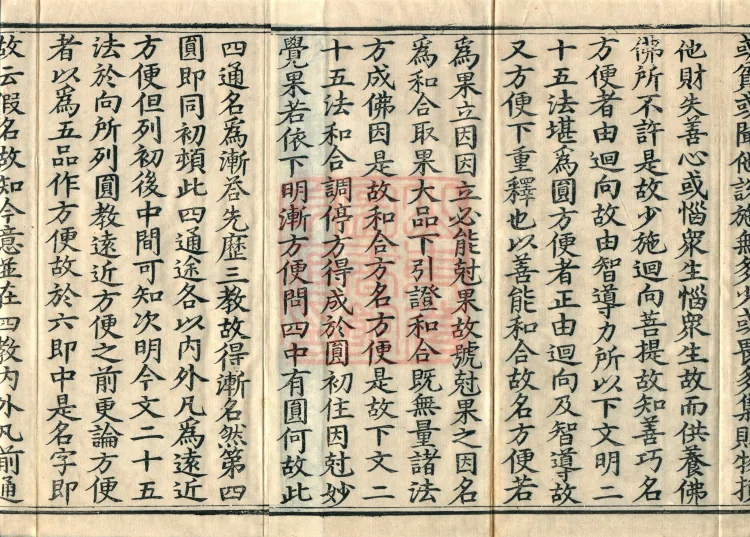 他財失善心或惱眾生惱眾生故而供養佛
佛所不許是故少施迴向菩提故知善巧名
方便者由迴向故由智導力所以下文明二
十五法堪爲圓方便者正由迴向及智導故
又方便下重釋也以善能和合故名方便若
爲果立因因立必能尅果故號尅果之因名
爲和合取果大品下引證和合既無量諸法
方成佛因是故和合方名方便是故下文二
十五法和合調停方得成於圓初住因尅妙
覺果若依下明漸方便問四中有圓何故此
四通名爲漸荅先歷三教故得漸名然第四
圓即同初頓此四通途各以内外凡爲遠近
方便但列初後中間可知次明今文二十五
法於向所列圓教遠近方便之前更論方便
者以爲五品作方便故於六即中是名字即
故云假名故知今意並在四教内外凡前通